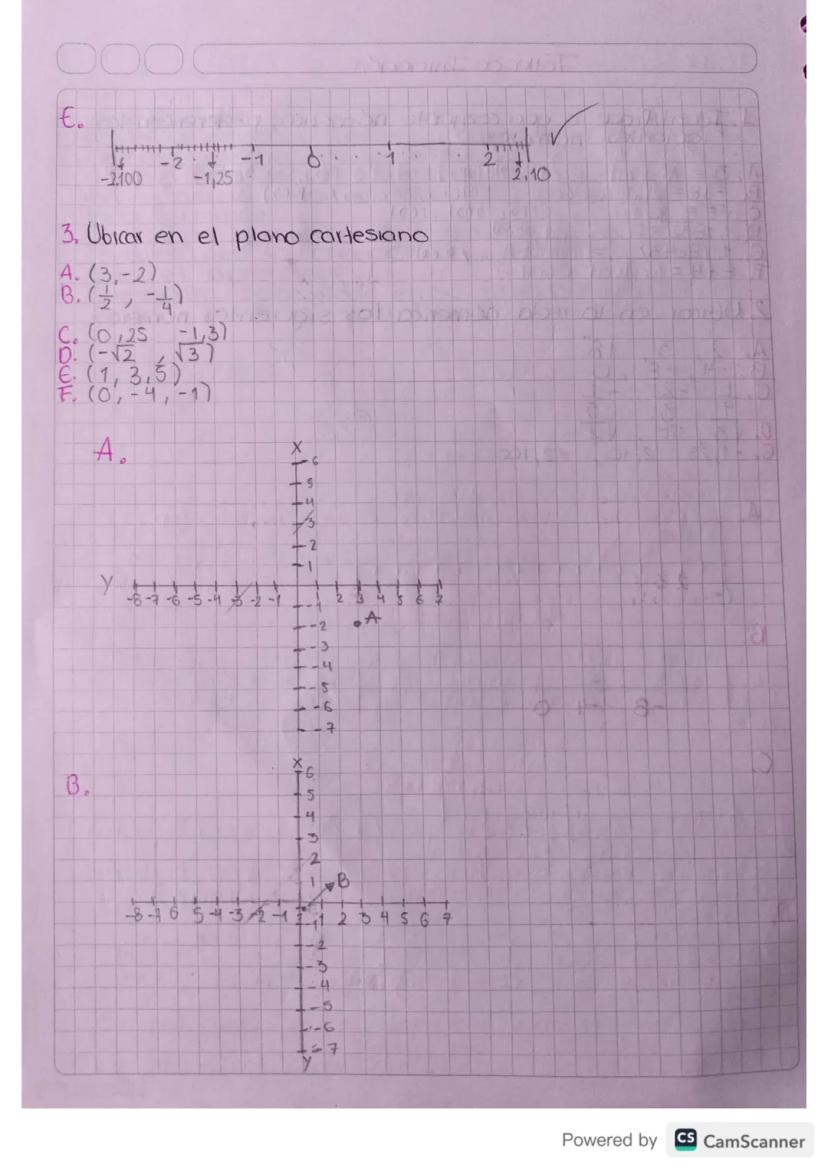 E.
-2 -1 0 1 2
-2,100 -1,25 2,10
3. Ubicar en el plano cartesiano
A. (3,-2)
B. (1/2, -1/4)
C. (0,25 -1,3)
D. (-√2, √3)
E. (1, 3,5)
F. (0, -4, -1)
A.
X
6
5
4
3
2
1
Y
-8 -7 -6 -5 -4 -3 -2 -1 1 2 3 4 5 6 7
-1
-2 A
-3
-4
-5
-6
-7
B.
X
6
5
4
3
2
1 B
-8 -7 6 5 -4 -3 -2 -1 1 2 3 4 5 6 7
-1
-2
-3
-4
-5
-6
-7
Y
Powered by CS CamScanner